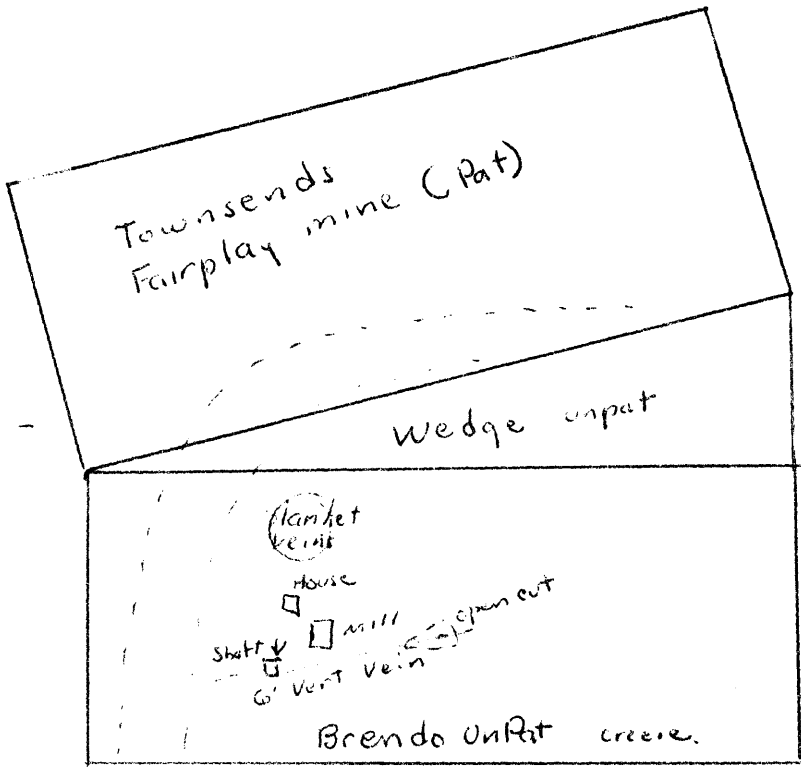 Townsends
Fairplay mine (Pat)
Wedge unpat
Blanket
veins
House
Mill
open cut
Shaft
6' Vert Vein
Brendo UnPat